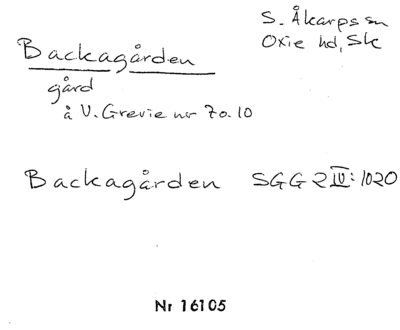 S. Åkarps sn
Oxie hd, Sk
Backagården
gård
å V. Grevie nr 7o.10
Backagården SGG 2 IV: 1020
Nr 16105